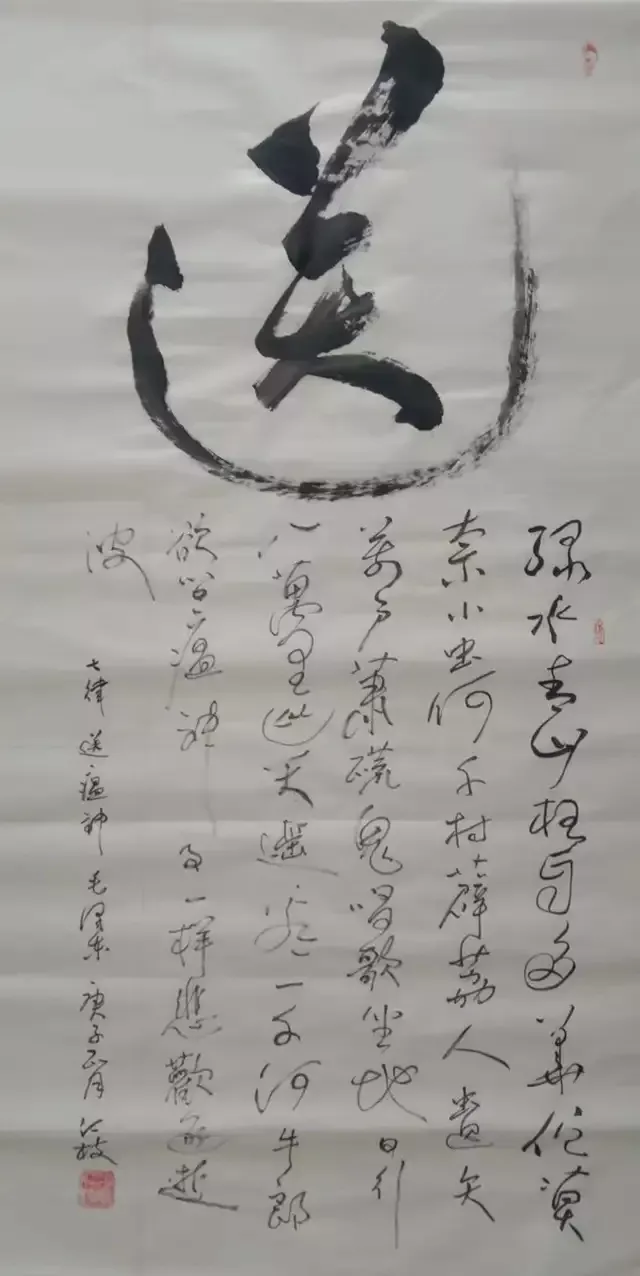 送
绿水青山枉自多華佗漠
奈小虫何千村薜荔人遺矢
萬户蕭疏鬼唱歌坐地日行
八萬里巡天遥看一千河牛郎
欲问瘟神事一样悲歡逐逝
波
七律 送瘟神 毛泽东 庚子正月